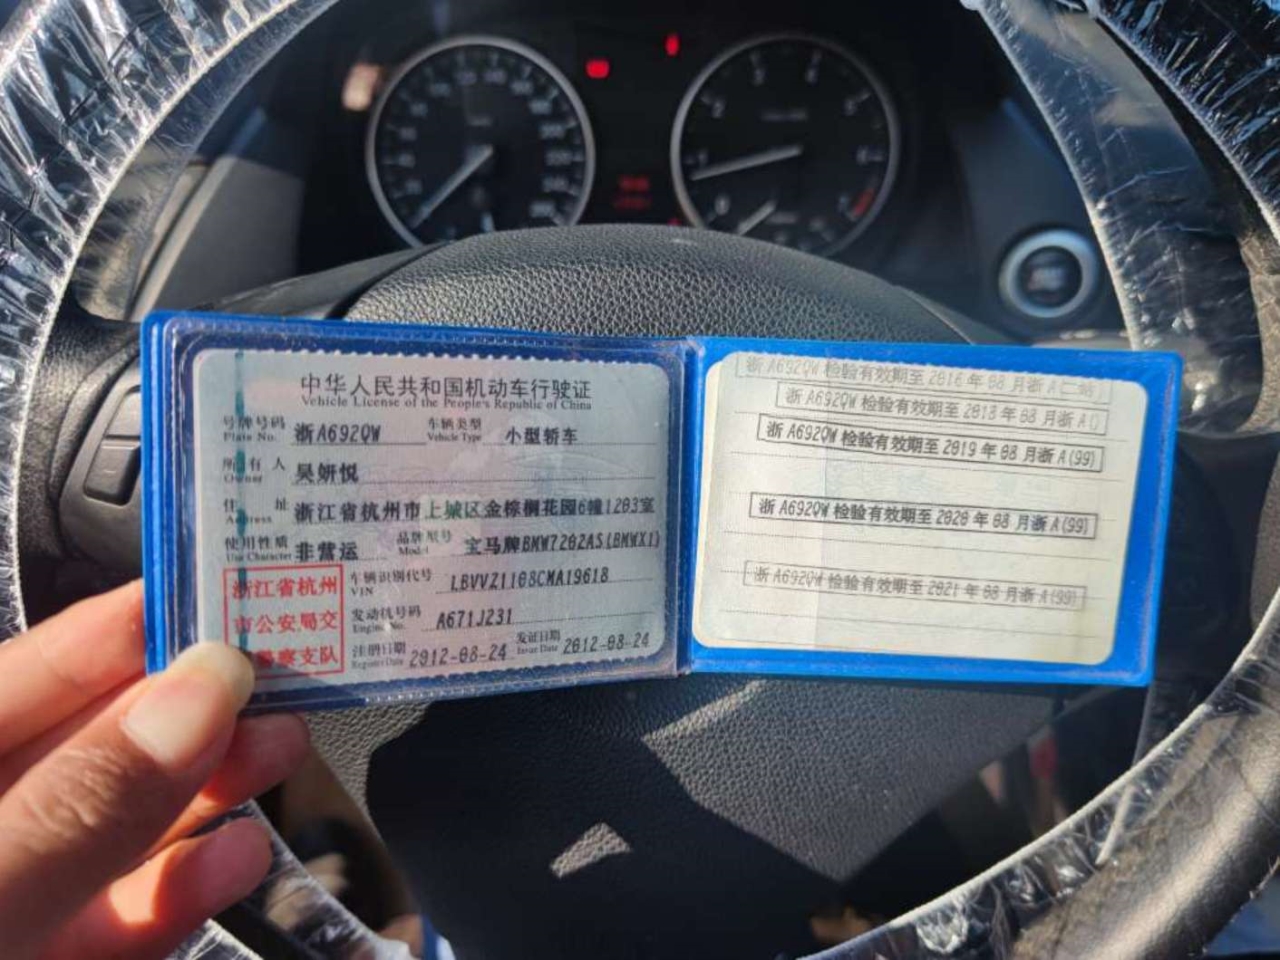 中华人民共和国机动车行驶证
Vehicle License of the People's Republic of China
号牌号码 浙A692QW 车辆类型 小型轿车
Plate No. Vehicle Type
所有人 吴妍悦
Owner
住址 浙江省杭州市上城区金棕榈花园6幢1203室
Address
使用性质 非营运 品牌型号 宝马牌BMW7202AS(BMWX1)
Use Character Model
浙江省杭州
市公安局交
警察支队
车辆识别代号 LBVVZ1108CMA19618
VIN
发动机号码 A671J231
Engine No.
注册日期 2012-08-24 发证日期 2012-08-24
Register Date Issue Date
浙A692QW 检验有效期至 2016 年 08 月浙A
浙A692QW 检验有效期至 2018 年 08 月浙A
浙A692QW 检验有效期至 2019 年 08 月浙A(99)
浙A692QW 检验有效期至 2020 年 08 月浙A(99)
浙A692QW 检验有效期至 2021 年 08 月浙A(99)